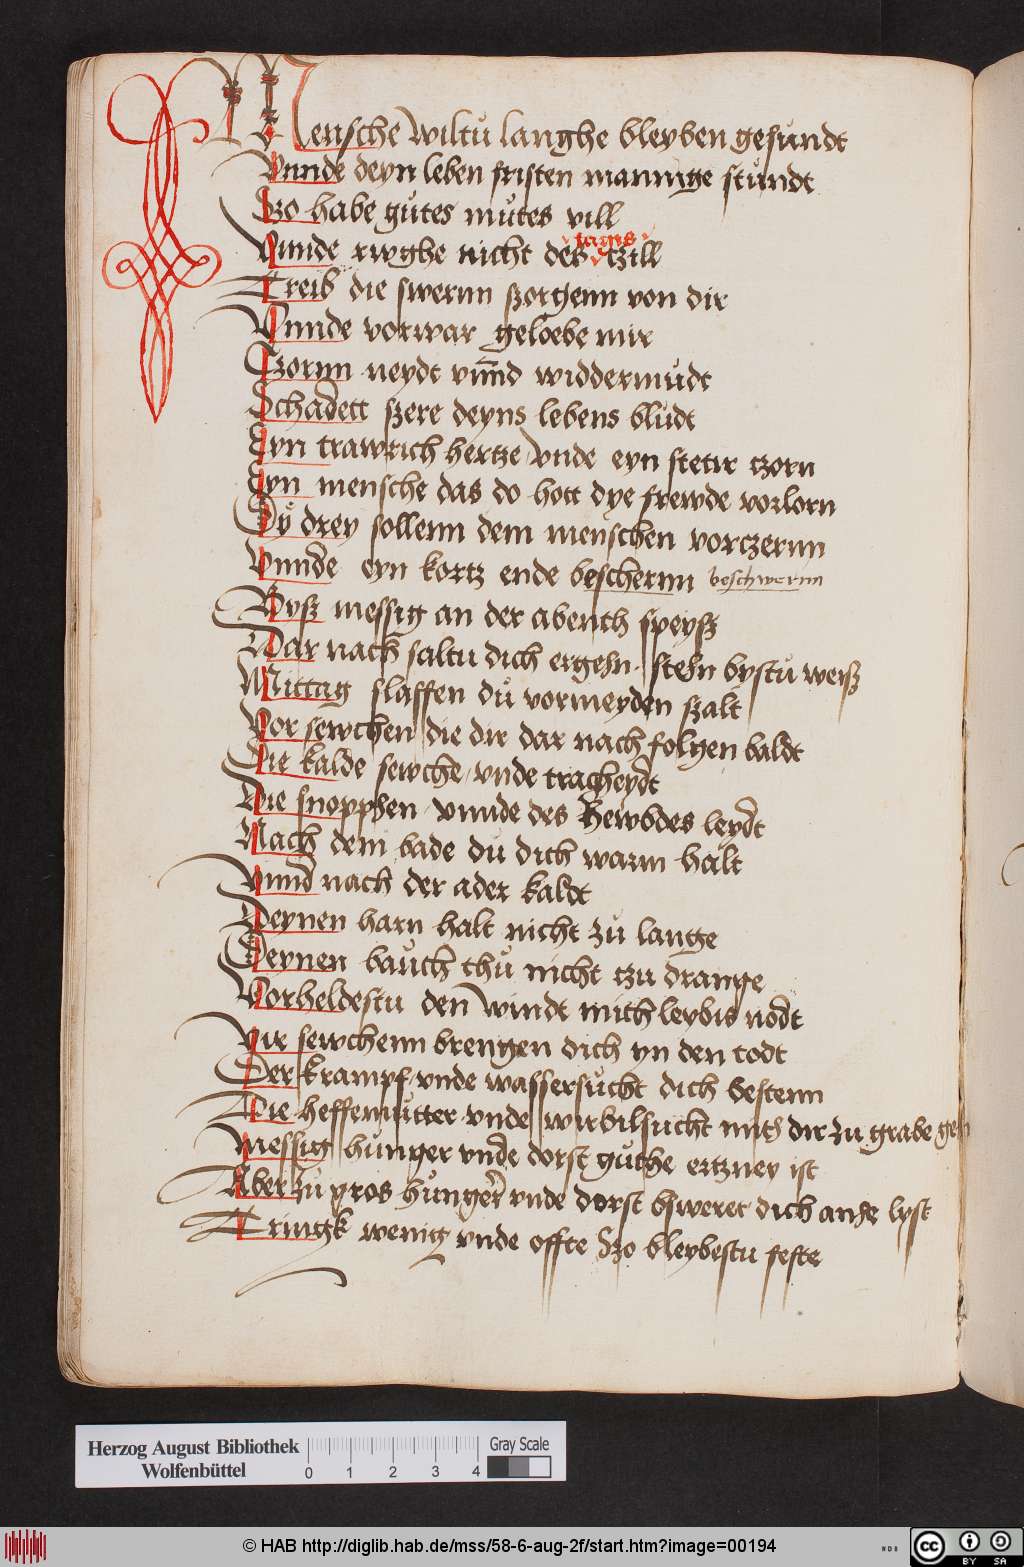 Mensche wiltu langhe bleyben gesundt
Vnnde deyn leben fristen mannige stundt
Szo habe gutes mutes vill
Vnnde rwghe nicht des tczill
Treib die swernn szorgenn von dir
Vnnde vorwar geloebe mir
Tzornn neydt vnnd widdermudt
Schadett szere deyns lebens bludt
Eyn trawrich hertze vnde eyn stetir tzorn
Eyn mensche das do hott dye frewde vorlorn
Dy drey sollenn dem menschen vorczernn
Vnnde eyn kortz ende beschernn beschwernn
Byß messig an der abenth speysz
Dar nach saltu dich ergehn stehn bystu weisz
Mittag slaffen du vormeyden szalt
Vor sewchen die dir dar nach folgen baldt
Die kalde sewche vnde tracheydt
Die snopphen vnnde des hewbdes leydt
Nach dem bade du dich warm halt
Vnnd nach der ader kaldt
Deynen harn halt nicht zu lange
Deynen bauch thu nicht tzu drange
Vorheldestu den windt mith leybis nodt
Vir sewchenn brengen dich yn den todt
Der krampf vnde wassersucht dich bestenn
Die heffemutter vnde wirbilsucht mith dir zu grabe gehn
Messig hunger vnde dorst guthe ertzney ist
Aber zu gros hunger vnde dorst bsweret dich an he lyst
Tringk wenig vnde offte Szo bleybestu feste
Herzog August Bibliothek
Wolfenbüttel
0 1 2 3 4
Gray Scale
© HAB http://diglib.hab.de/mss/58-6-aug-2f/start.htm?image=00194
WDB
cc
BY SA